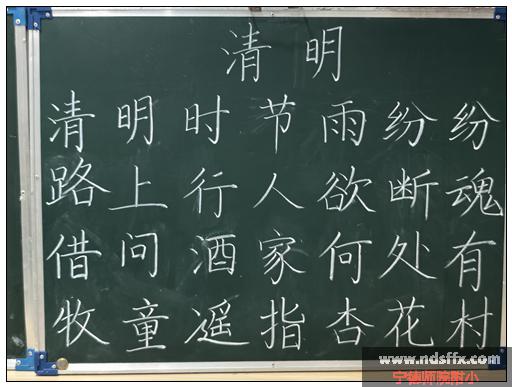 清明
清明时节雨纷纷
路上行人欲断魂
借问酒家何处有
牧童遥指杏花村
www.ndsffx.com
宁德师院附小